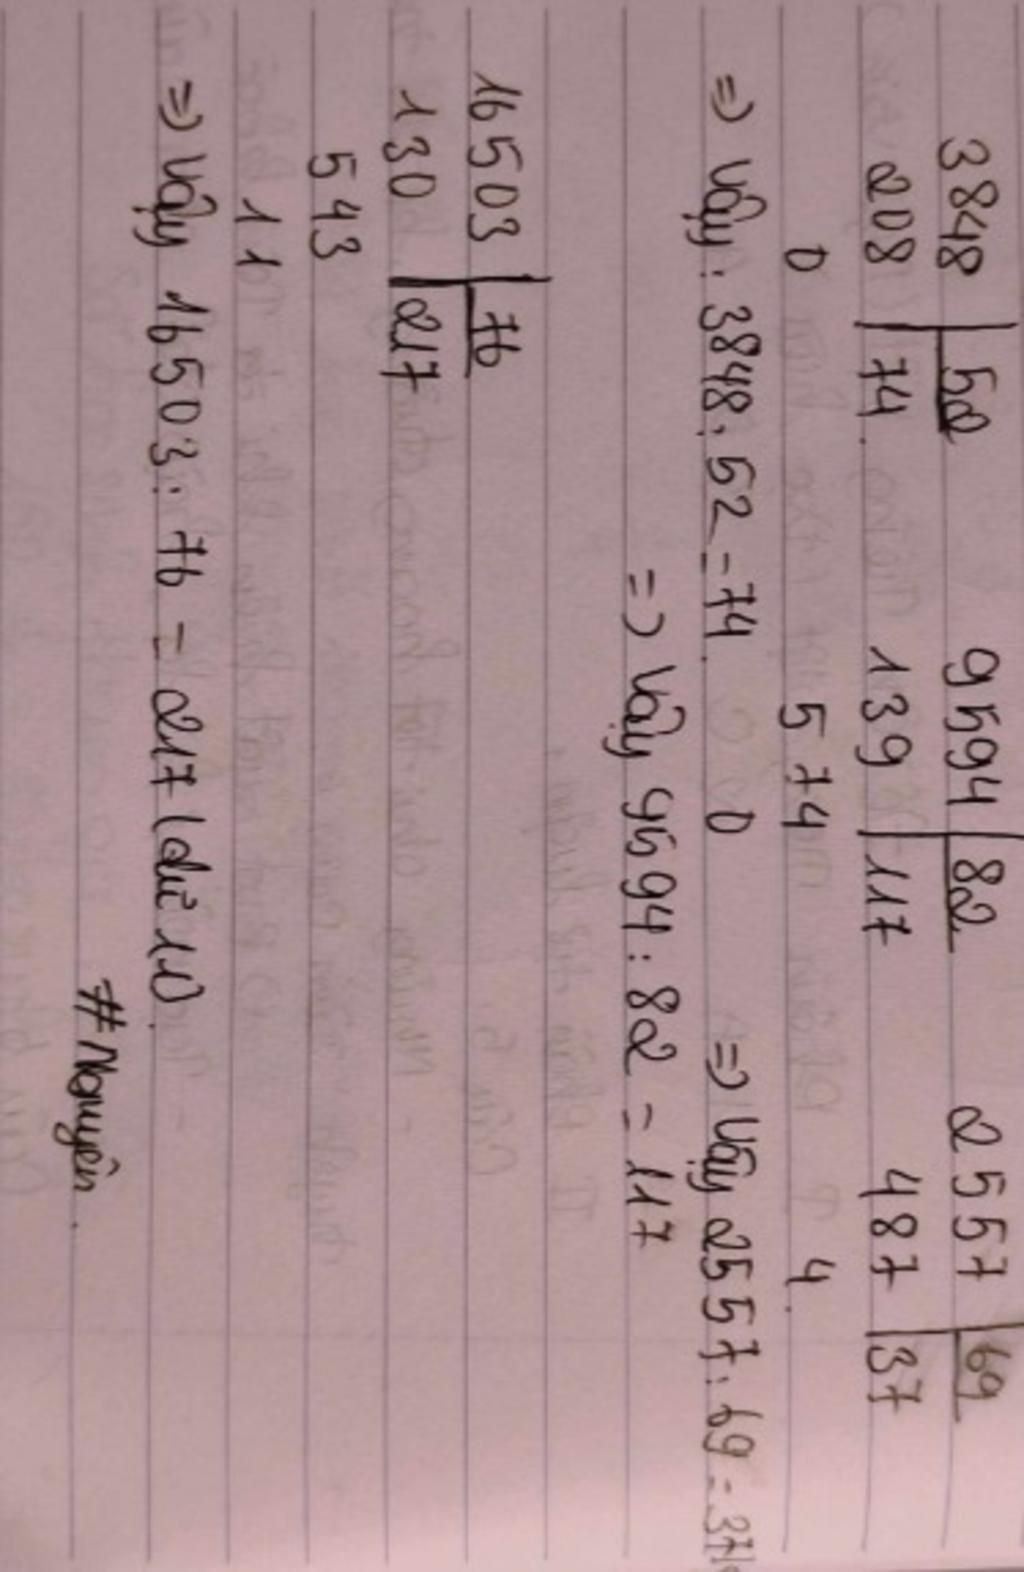 3848 | 52 9594 | 82 2557 | 69
208 | 74 139 | 117 487 | 37
0 574 4
=> Vậy : 3848 : 52 = 74 0 => Vậy 2557 : 69 = 37
=> Vậy 9594 : 82 = 117
16503 | 76
130 | 217
543
11
=> Vậy 16503 : 76 = 217 (dư 11)
#Nguyên